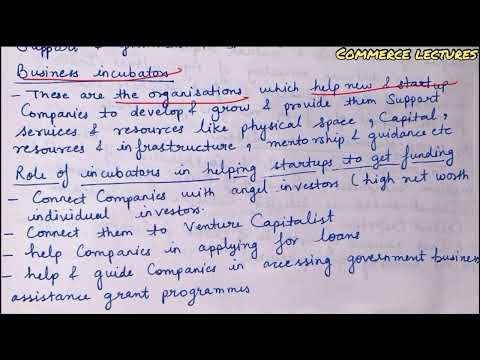 Commerce lectures
Support &
Business incubators
- These are the organisations which help new & startup
Companies to develop & grow & provide them Support
services & resources like physical space, Capital,
resources & infrastructure, mentorship & guidance etc
Role of incubators in helping startups to get funding
- Connect Companies with angel investors (high net worth
individual investors.
- Connect them to Venture Capitalist
- help Companies in applying for loans
- help & guide Companies in accessing government business
assistance grant programmes